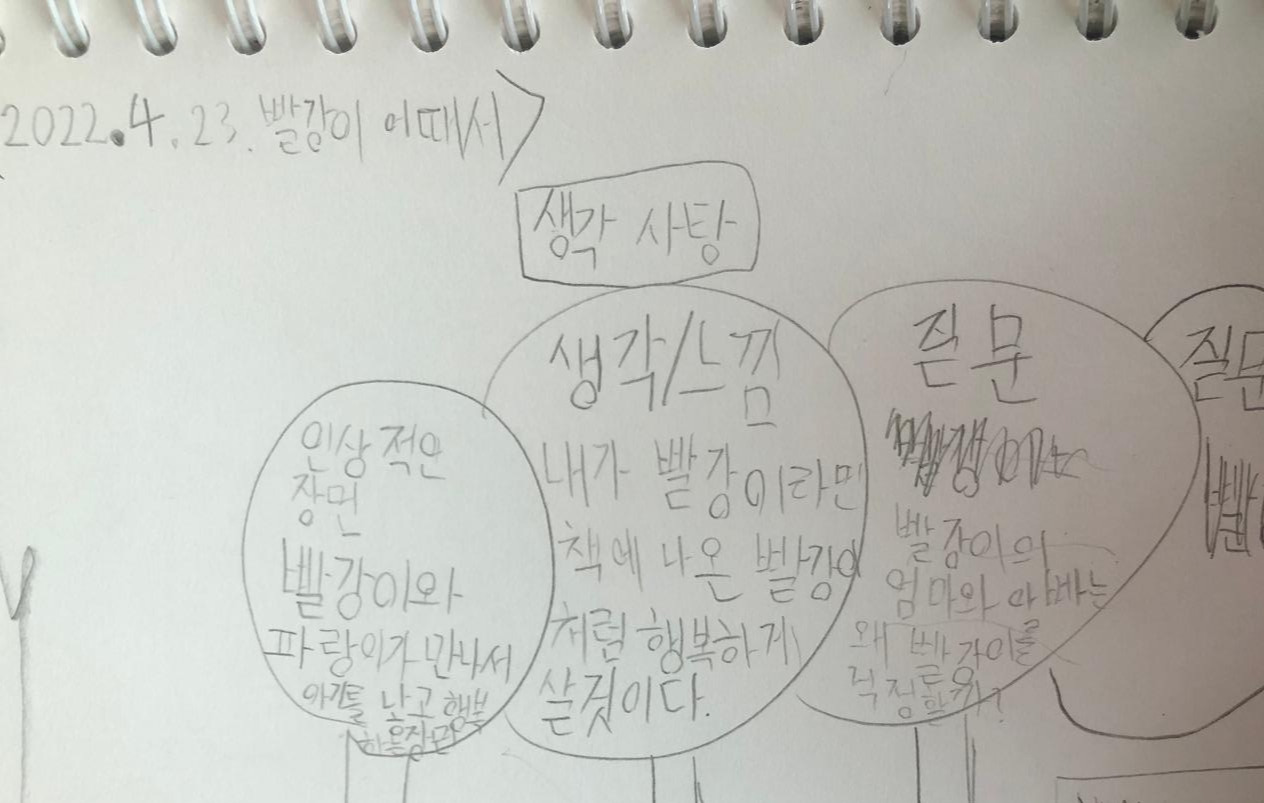 2022.4.23. 빨강이 어때서>
생각 사탕
인상적인
장면
빨강이와
파랑이가 만나서
아기를 낳고 행복
생각/느낌
내가 빨강이라면
책에 나온 빨강이
처럼 행복하게
살것이다.
질문
빨강이의
엄마와 아빠는
왜 빨강이를
걱정할까?
질문